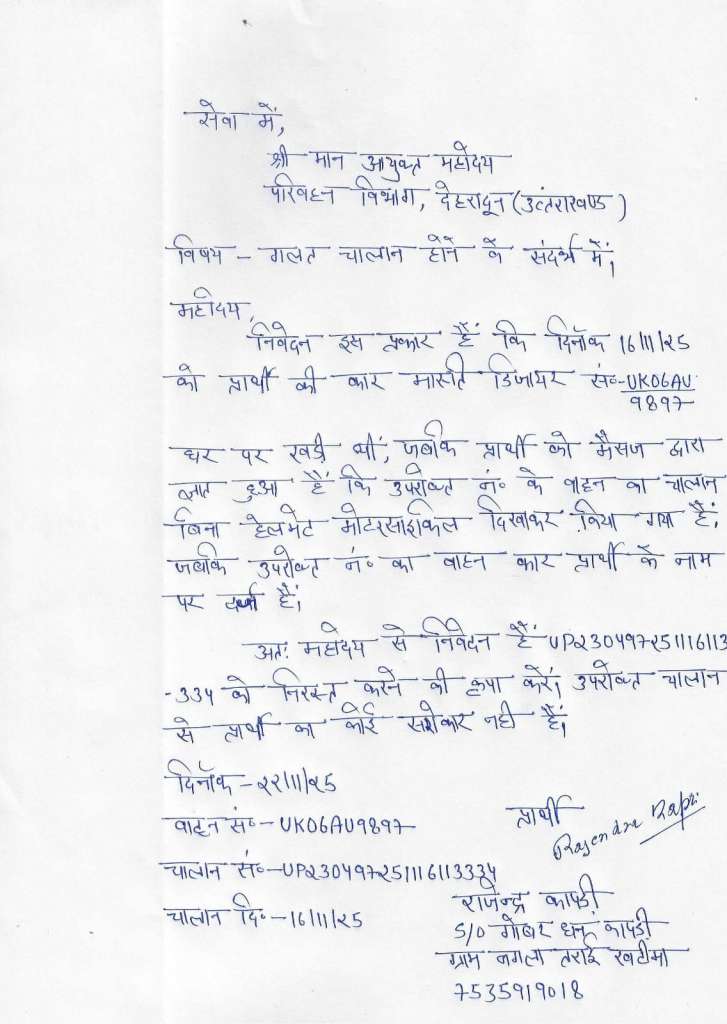 सेवा में,
श्री मान आयुक्त महोदय
परिवहन विभाग, देहरादून (उत्तराखण्ड)
विषय - गलत चालान होने के संदर्भ में,
महोदय,
निवेदन इस प्रकार हैं कि दिनाँक 16/11/25
को प्रार्थी की कार मारूती डिजायर सं०-UK06AU
9897
घर पर खड़ी थीं, जबकि प्रार्थी को मैसज द्वारा
ज्ञात हुआ हैं कि उपरोक्त नं० के वाहन का चालान
बिना हेलमेट मोटरसाइकिल दिखाकर किया गया हैं,
जबकि उपरोक्त नं० का वाहन कार प्रार्थी के नाम
पर दर्ज हैं,
अतः महोदय से निवेदन हैं UP230497251116113
-334 को निरस्त करने की कृपा करें, उपरोक्त चालान
से प्रार्थी का कोई सरोकार नही हैं,
दिनाँक - 22/11/25
वाहन सं० - UK06AU9897
प्रार्थी
Rajendra Kapri
चालान सं० - UP230497251116113334
राजेन्द्र कापड़ी
चालान दि० - 16/11/25
S/O गोबर धन कापड़ी
ग्राम नगला तराई खटीमा
7535919018